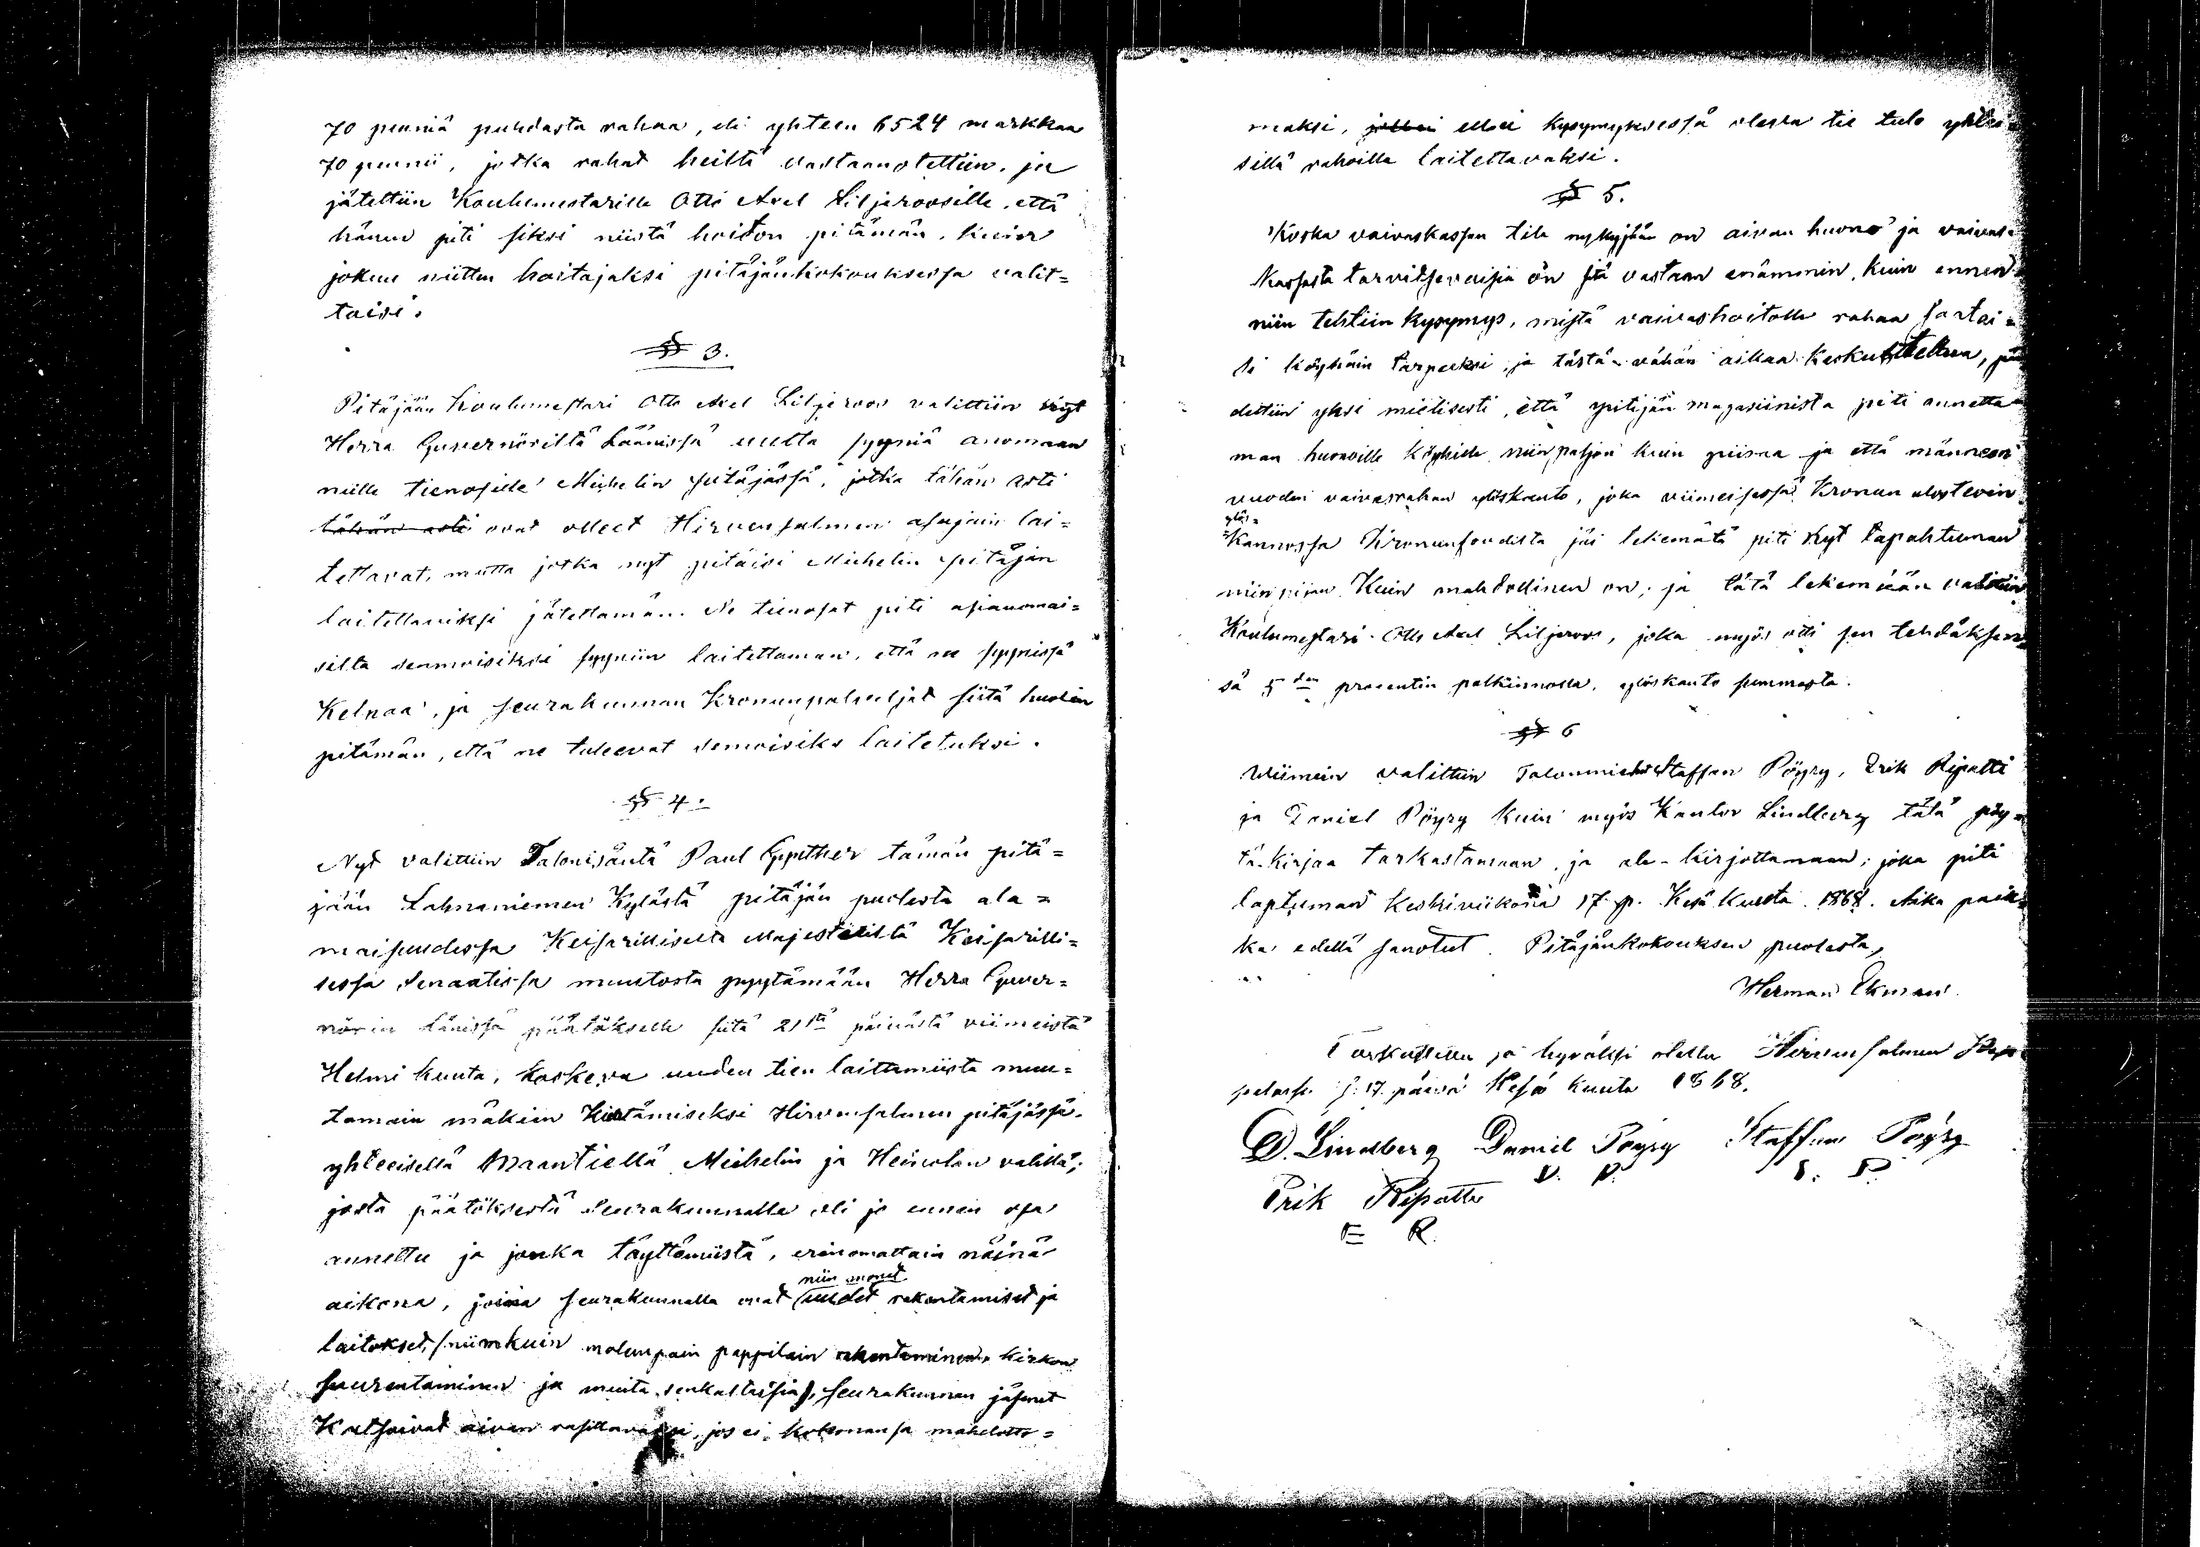 70 penniä puhdasta rahaa, eli yhteen 6524 markkaa
70 pennii, jotka rahat heiltä vastaanotettiin, ja
jätettiin Koulumestarille Otto Axel Liljeroosille, että
hänen piti siksi niistä hoidon pitämän, kuin
jokuu niitten hoitajaksi pitäjänkokouksessa valit=
taisi.
§ 3.
Pitäjään koulumestari Otto Axel Liljeroos valittiin nyt
Herra Guvernöriltä Läänissä uutta syyniä anomaan
niille tienosille Michelin pitäjässä, jotka tähän asti
tähän asti ovat olleet Hirvensalmen asujain lai=
tettavat, mutta jotka nyt pitäisi Michelin pitäjän
laitettaviksi jätettämän. Ne tienosat piti asianomai=
silta senmoisiksi syyniin laitettaman, että ne syynissä
Kelpaa, ja seurakunnan Kronunpalveljat siitä huolen
pitämän, että ne tuleevat semoisiks laitetuksi.
§ 4.
Nyt valittiin Talonisäntä Paul Gynther tämän pitä=
jään Lahnaniemen Kylästä pitäjän puolesta ala=
maisuudessa Keisarilliselta Majesteetiltä Keisarilli=
sessa Senaatissa muutosta pyytämään Herra Guver=
nörin Länissä päätökselle siitä 21stä päivästä viimeistä
Helmi kuuta, koskeva uuden tien laittamista muu=
tamain mäkiin Kiertämiseksi Hirvensalmen pitäjässä
yhteeisellä Maantiellä Michelin ja Heinolan välillä;
josta päätöksestä Seurakunnalle oli jo ennen osa
annettu ja jonka täyttämiistä, erinomattain näinä
aikona, joina seurakunnalla ovat niin monet
uudet rakentamiset ja
laitokset, (niinkuin molempain pappilain rakentaminen, kirkon
suurentaminen ja muita senkaltaisia), seurakunnan jäsenet
Katsoivat aivan rasittavaksi, jos ei kokonansa mahdotto=
maksi, jollei ellei kysymyksessä oleva tie tule yhtei=
sillä rahoilla laitettavaksi.
§ 5.
Koska vaivaskassan tila nykyjään on aivan huono ja vaivas=
kassasta tarvitsevaisia on sitä vastaan enämmin, kuin ennen
niin tehtiin Kysymys, mistä vaivashoitolle rahaa saatai=
si köyhäin tarpeeksi, ja tästä vähän aikaa keskusteltua, pää
dettiin yksi mielisesti, että pitäjän magasiinista piti annetta
man huonoille köyhille niin paljon kuin piisaa ja että männeen
vuoden vaivasrahan ylöskanto, joka viimeisessä Kronun ulosteoin
ylös=
kannossa Kronunfoudista jäi tekemätä piti nyt tapahtuman
niin pian Kuin mahdollinen on, ja tätä tekemään valittiin
Koulumestari Otto Axel Liljeroos, joka myös otti sen tehdäksen
sä 5den prosentin palkinnolla, ylöskanto summasta.
§ 6
Wiimein valittiin Talonmiehet Staffan Pöyry, Erik Ripatti
ja Daniel Pöyry kuin myös Kantor Lindberg tätä pöy=
tä-kirjaa tarkastamaan ja ala-kirjottamaan; joka piti
taptuman Keskiviikona 17 p. Kesä Kuuta 1868. Aika paik=
ka edellä sanotut. Pitäjänkokouksen puolesta,
Herman Ekman.
Tarkastettu ja hyväksi otettu Hirvensalmen
17 päivä Kesä kuuta 1868.
D. Lindberg Daniel Pöyry Staffan Pöyry
D. P. S. P.
Erik Ripatti
E R.